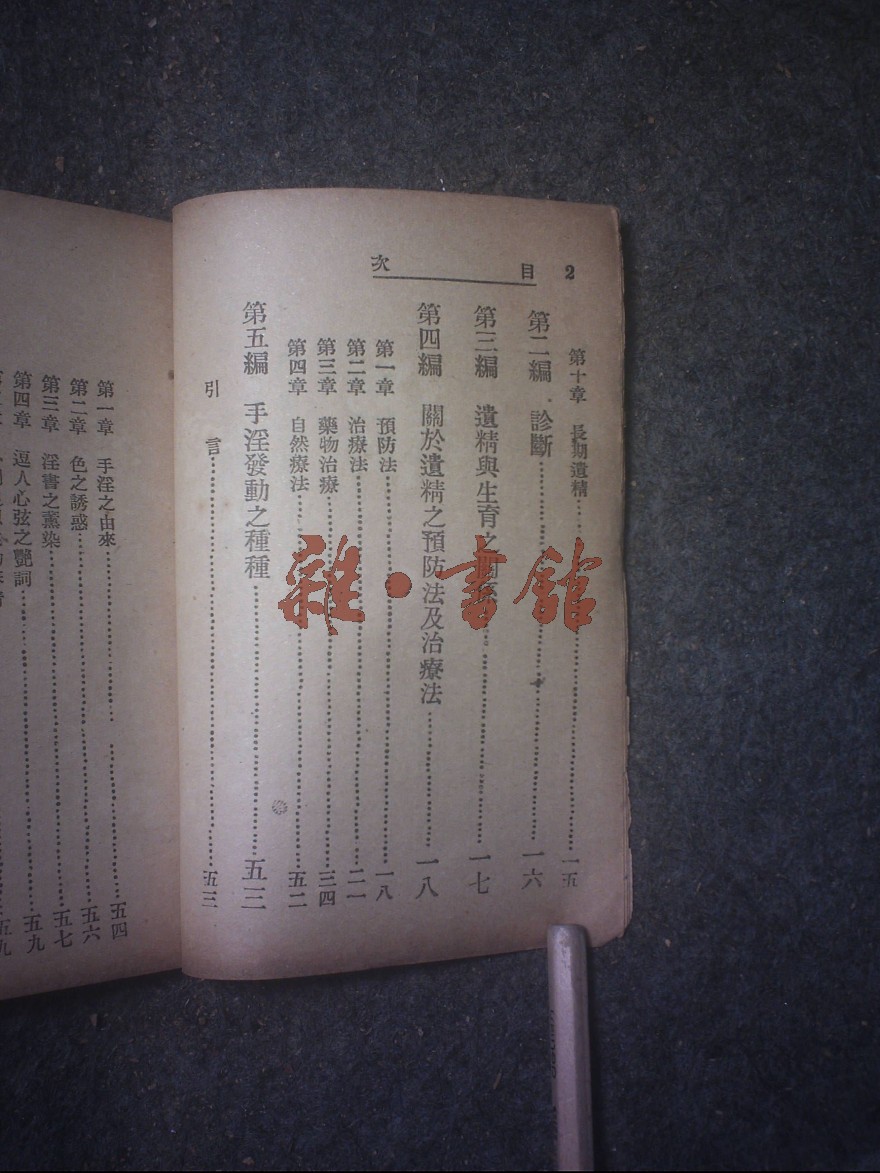 2 目次
第十章 長期遺精 一五
第二編 診斷 一六
第三編 遺精與生育之關係 一七
第四編 關於遺精之預防法及治療法 一八
第一章 預防法 一八
第二章 治療法 二一
第三章 藥物治療 三四
第四章 自然療法 五二
第五編 手淫發動之種種 五三
引言 五三
第一章 手淫之由來 五四
第二章 色之誘惑 五六
第三章 淫書之薰染 五七
第四章 逗人心弦之艷詞 五九
五九
雜·書館